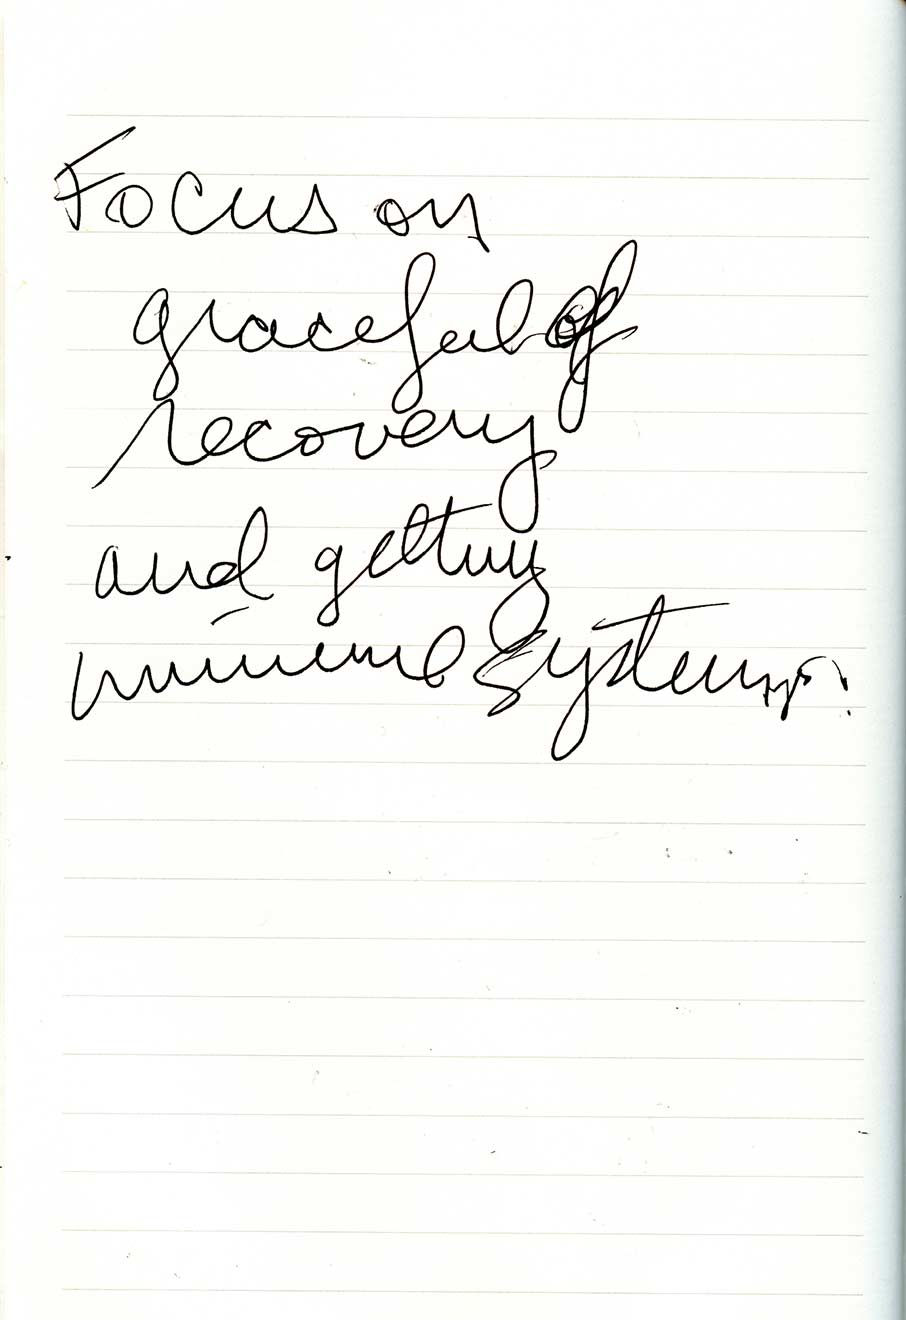 Focus on
graceful of
recovery
and getting
immune system